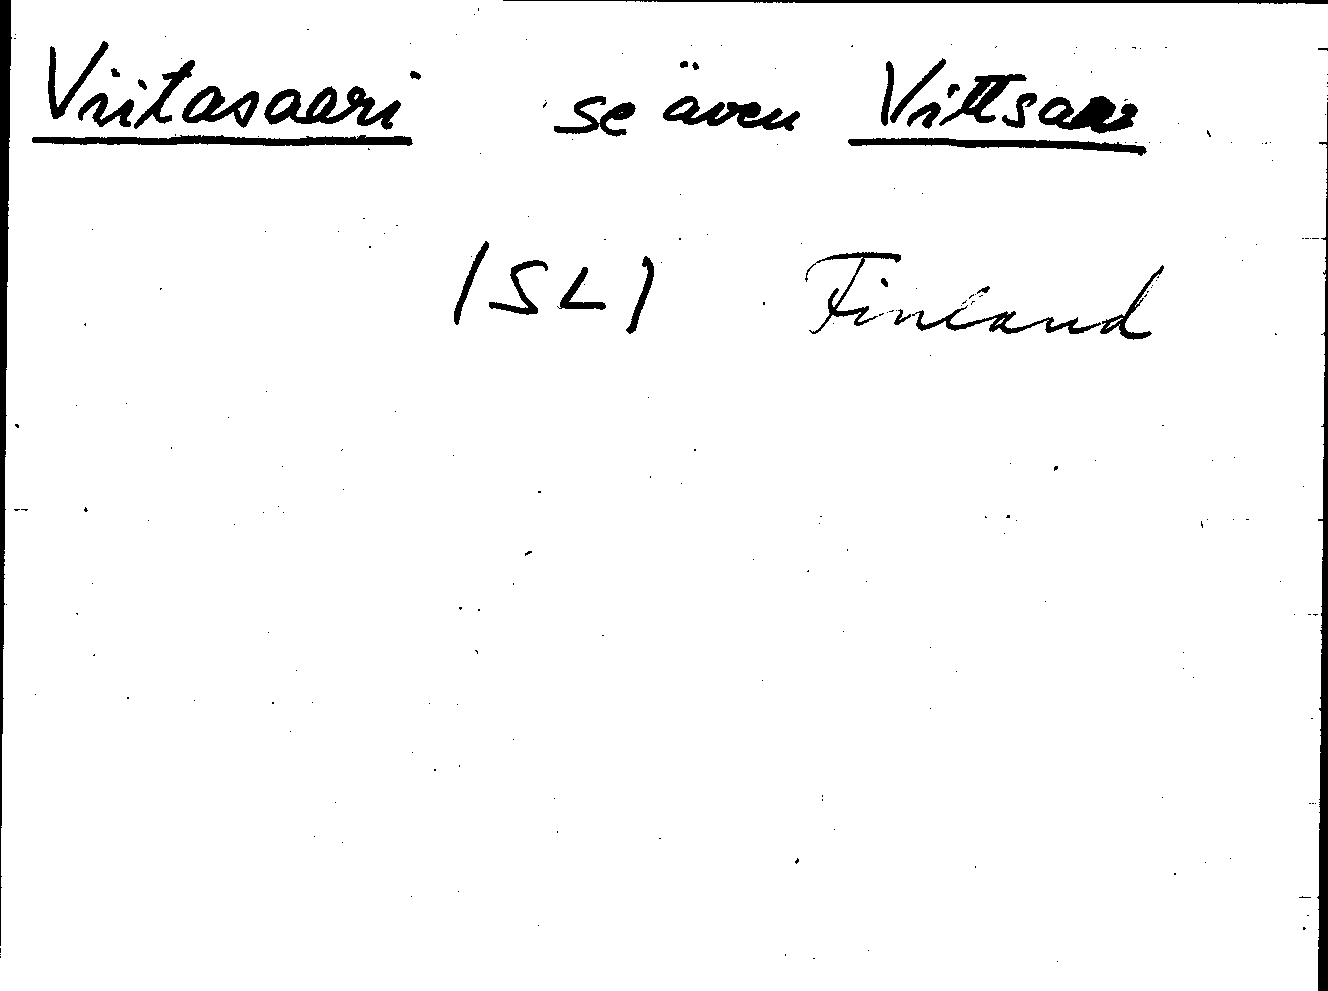 Viitasaari se även Vittsaar
/SL/ Finland